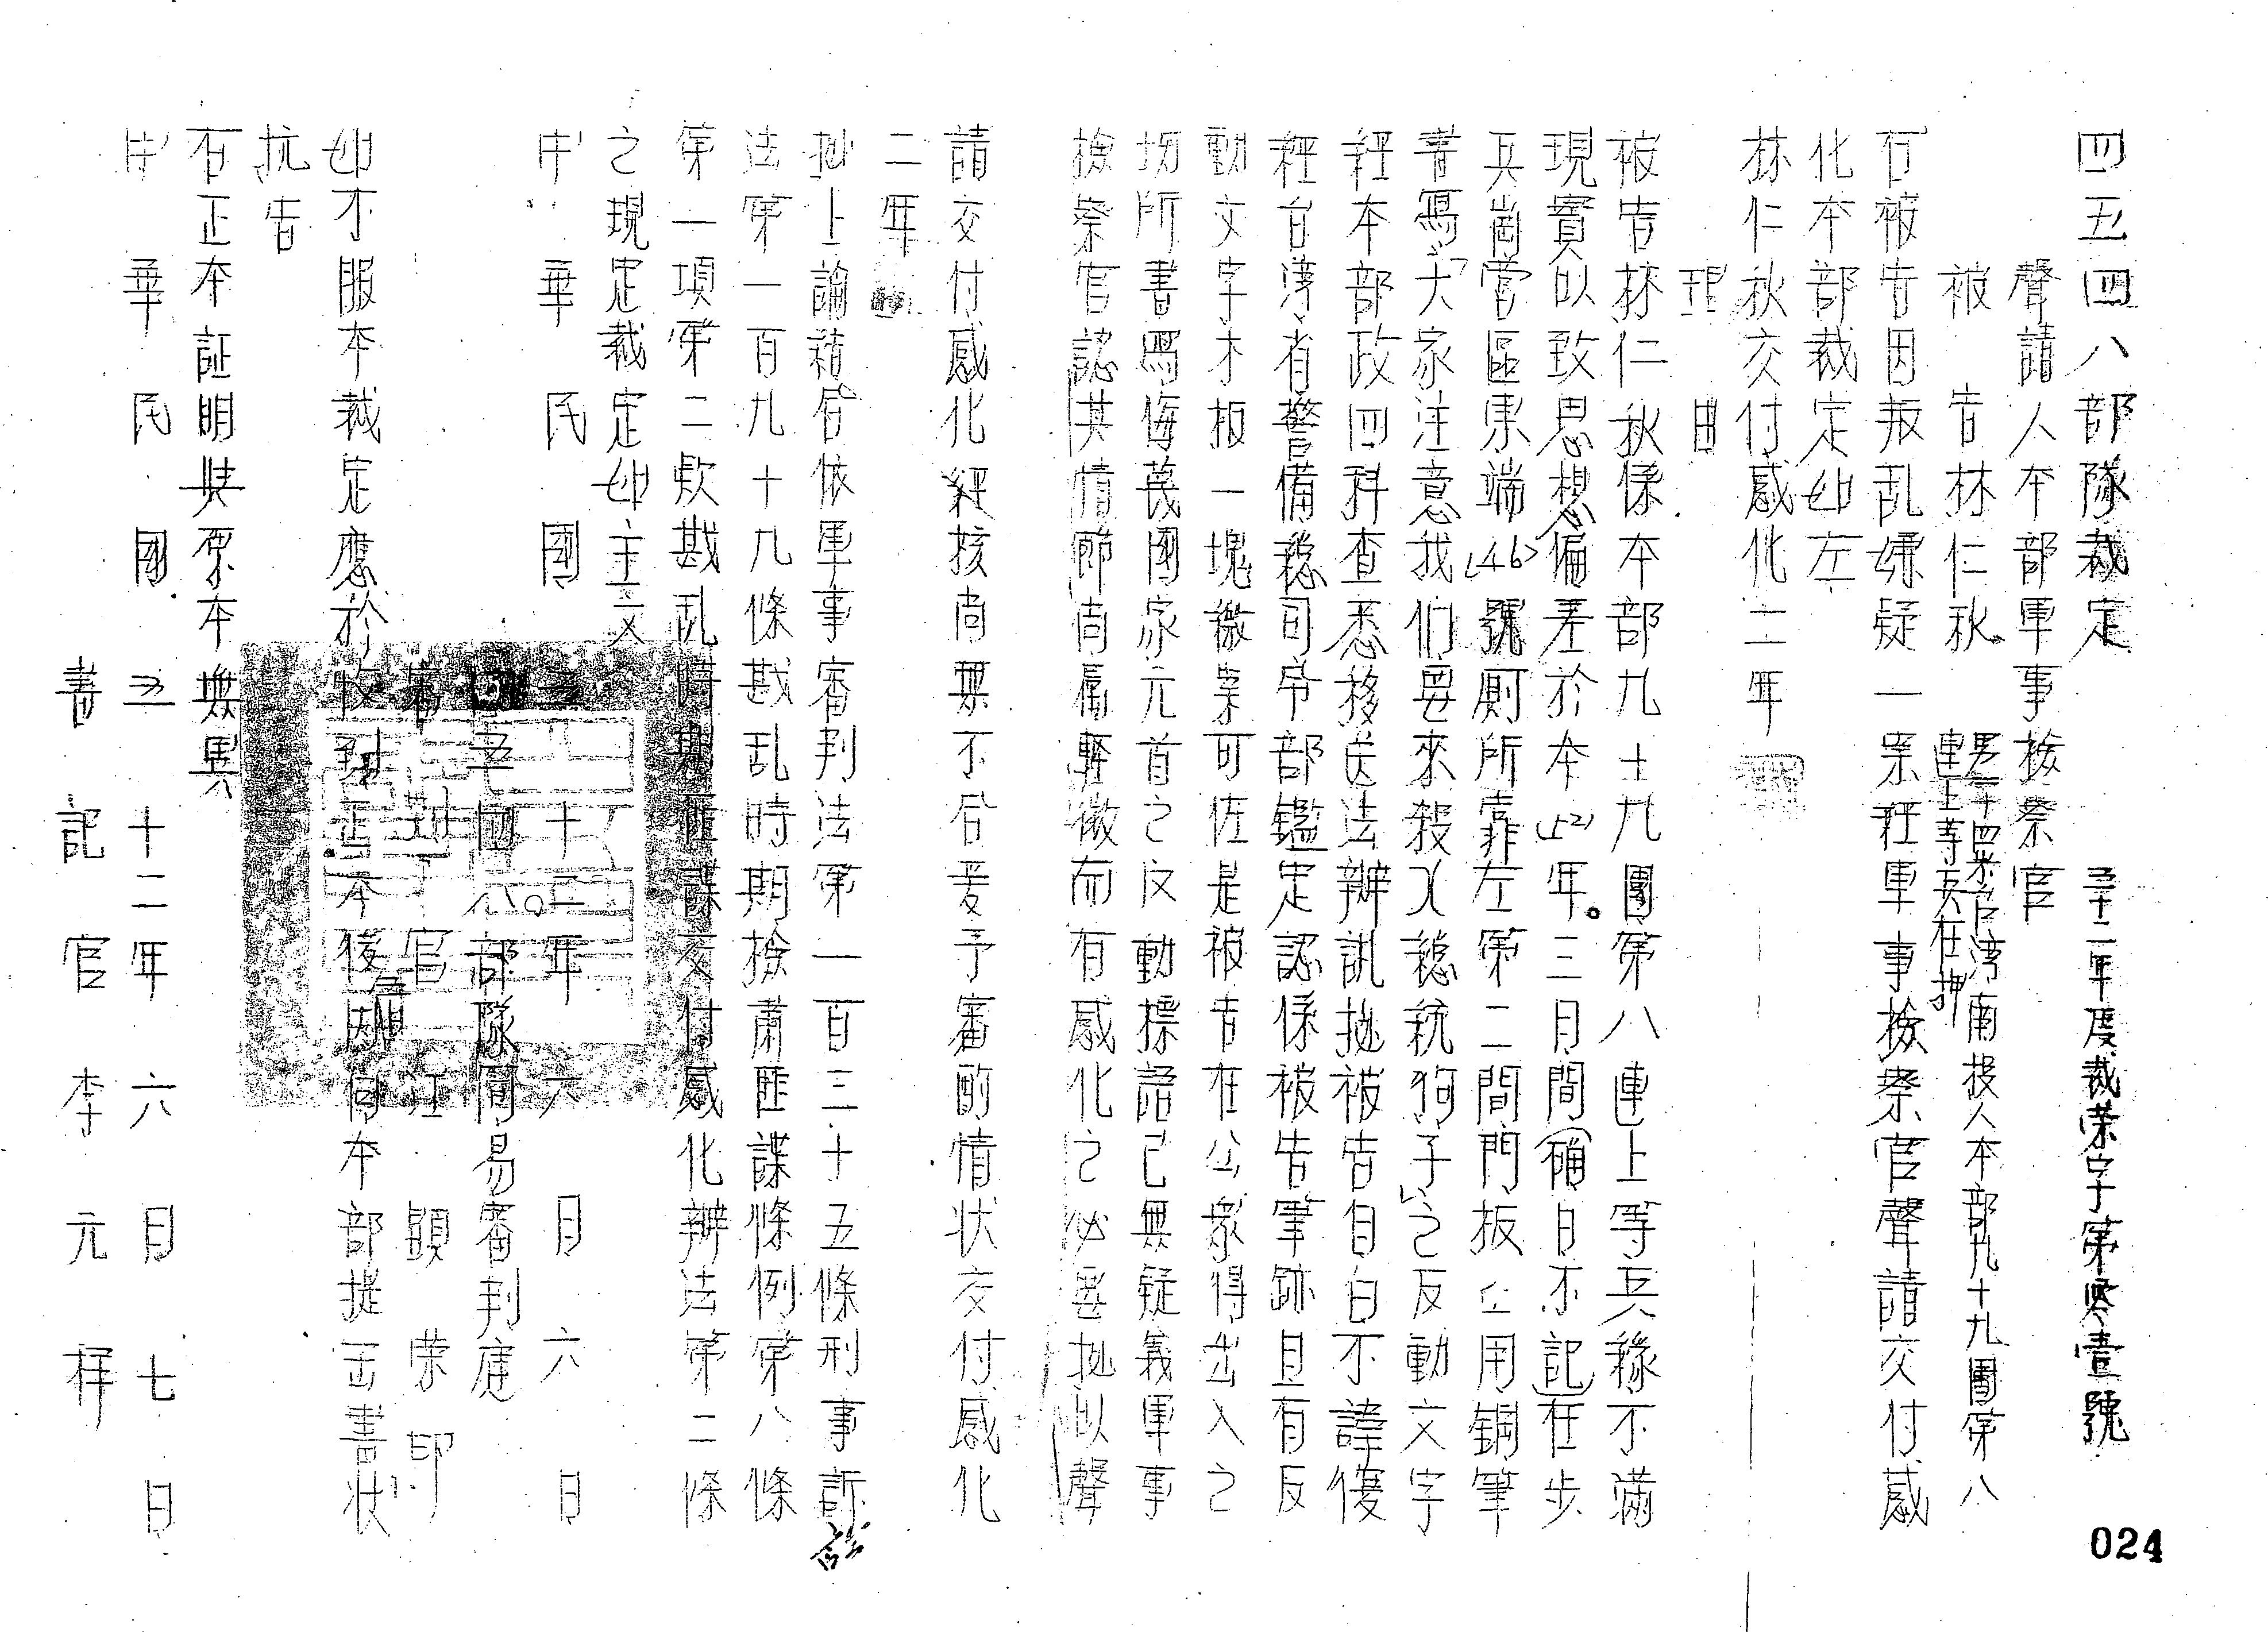 四五四八部隊裁定
五十二年度裁荣字第零壹號
聲請人本部軍事檢察官
被告林仁秋 男二十四嵗台湾南投人本部九十九團第八
連上等兵在押
右被告因叛乱嫌疑一案経軍事檢察官聲請交付感
化本部裁定如左
林仁秋交付感化二年
理由
被告林仁秋係本部九十九團第八連上等兵緣不滿
現實以致思想偏差於本(52)年三月間(確日不記)在步
兵崗営區東端(46)號厠所靠左第二間門板上用鋼筆
書寫「大家注意我们要來殺人総統狗子」之反動文字
経本部政四科查悉移送法辦訊據被告自白不諱復
経台湾省警備総司令部鑑定認係被告筆跡且有反
動文字木板一塊繳案可佐是被告在公眾得出入之
場所書寫侮蔑國家元首之反動標語已無疑義軍事
檢察官認其情節尚属輕微而有感化之必要拠以聲
請交付感化経核尚無不合爰予審酌情状交付感化
二年
拠上論結合依軍事審判法第一百三十五條刑事訴
法第一百九十九條戡乱時期檢肅匪諜條例第八條
第一項第二款戡乱時期匪諜交付感化辦法第二條
之規定裁定如主文
中華民國五十二年六月六日
四五四八部隊簡易審判庭
審判官江顕荣印
如不服本裁定應於收到正本後五日内向本部提出書状
抗告
右正本証明與原本無異
中華民國五十二年六月七日
書記官李元梓
024